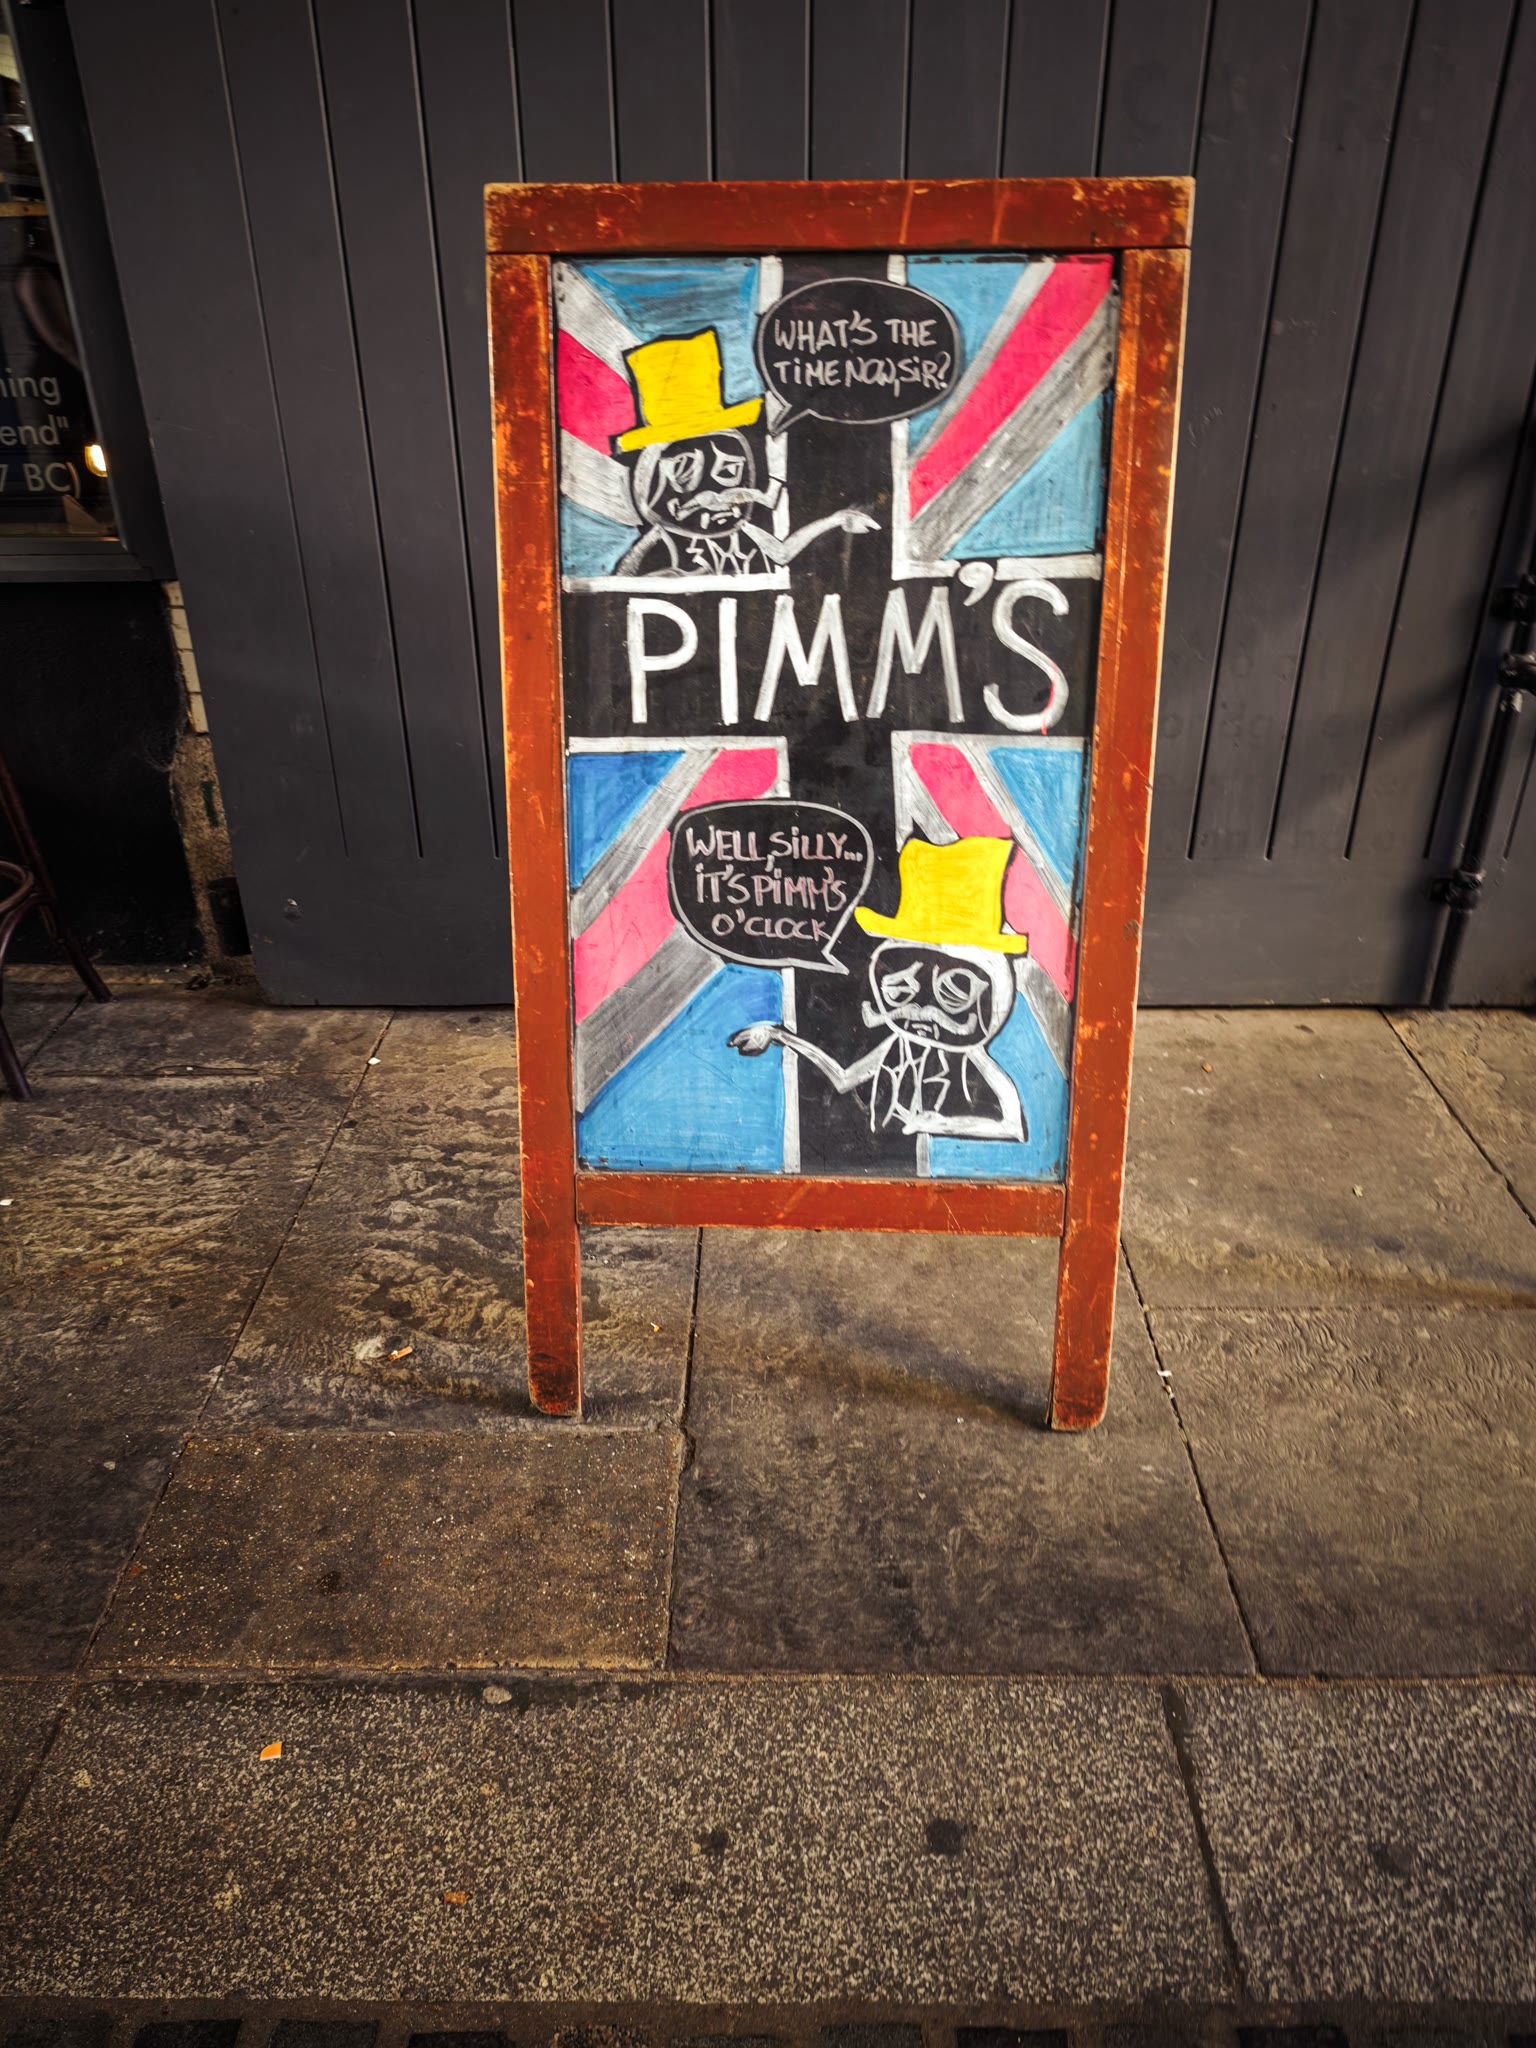 WHAT'S THE
TIME NOW, SIR?
PIMM'S
WELL, SILLY...
IT'S PIMM'S
O'CLOCK
end"
7 BC)